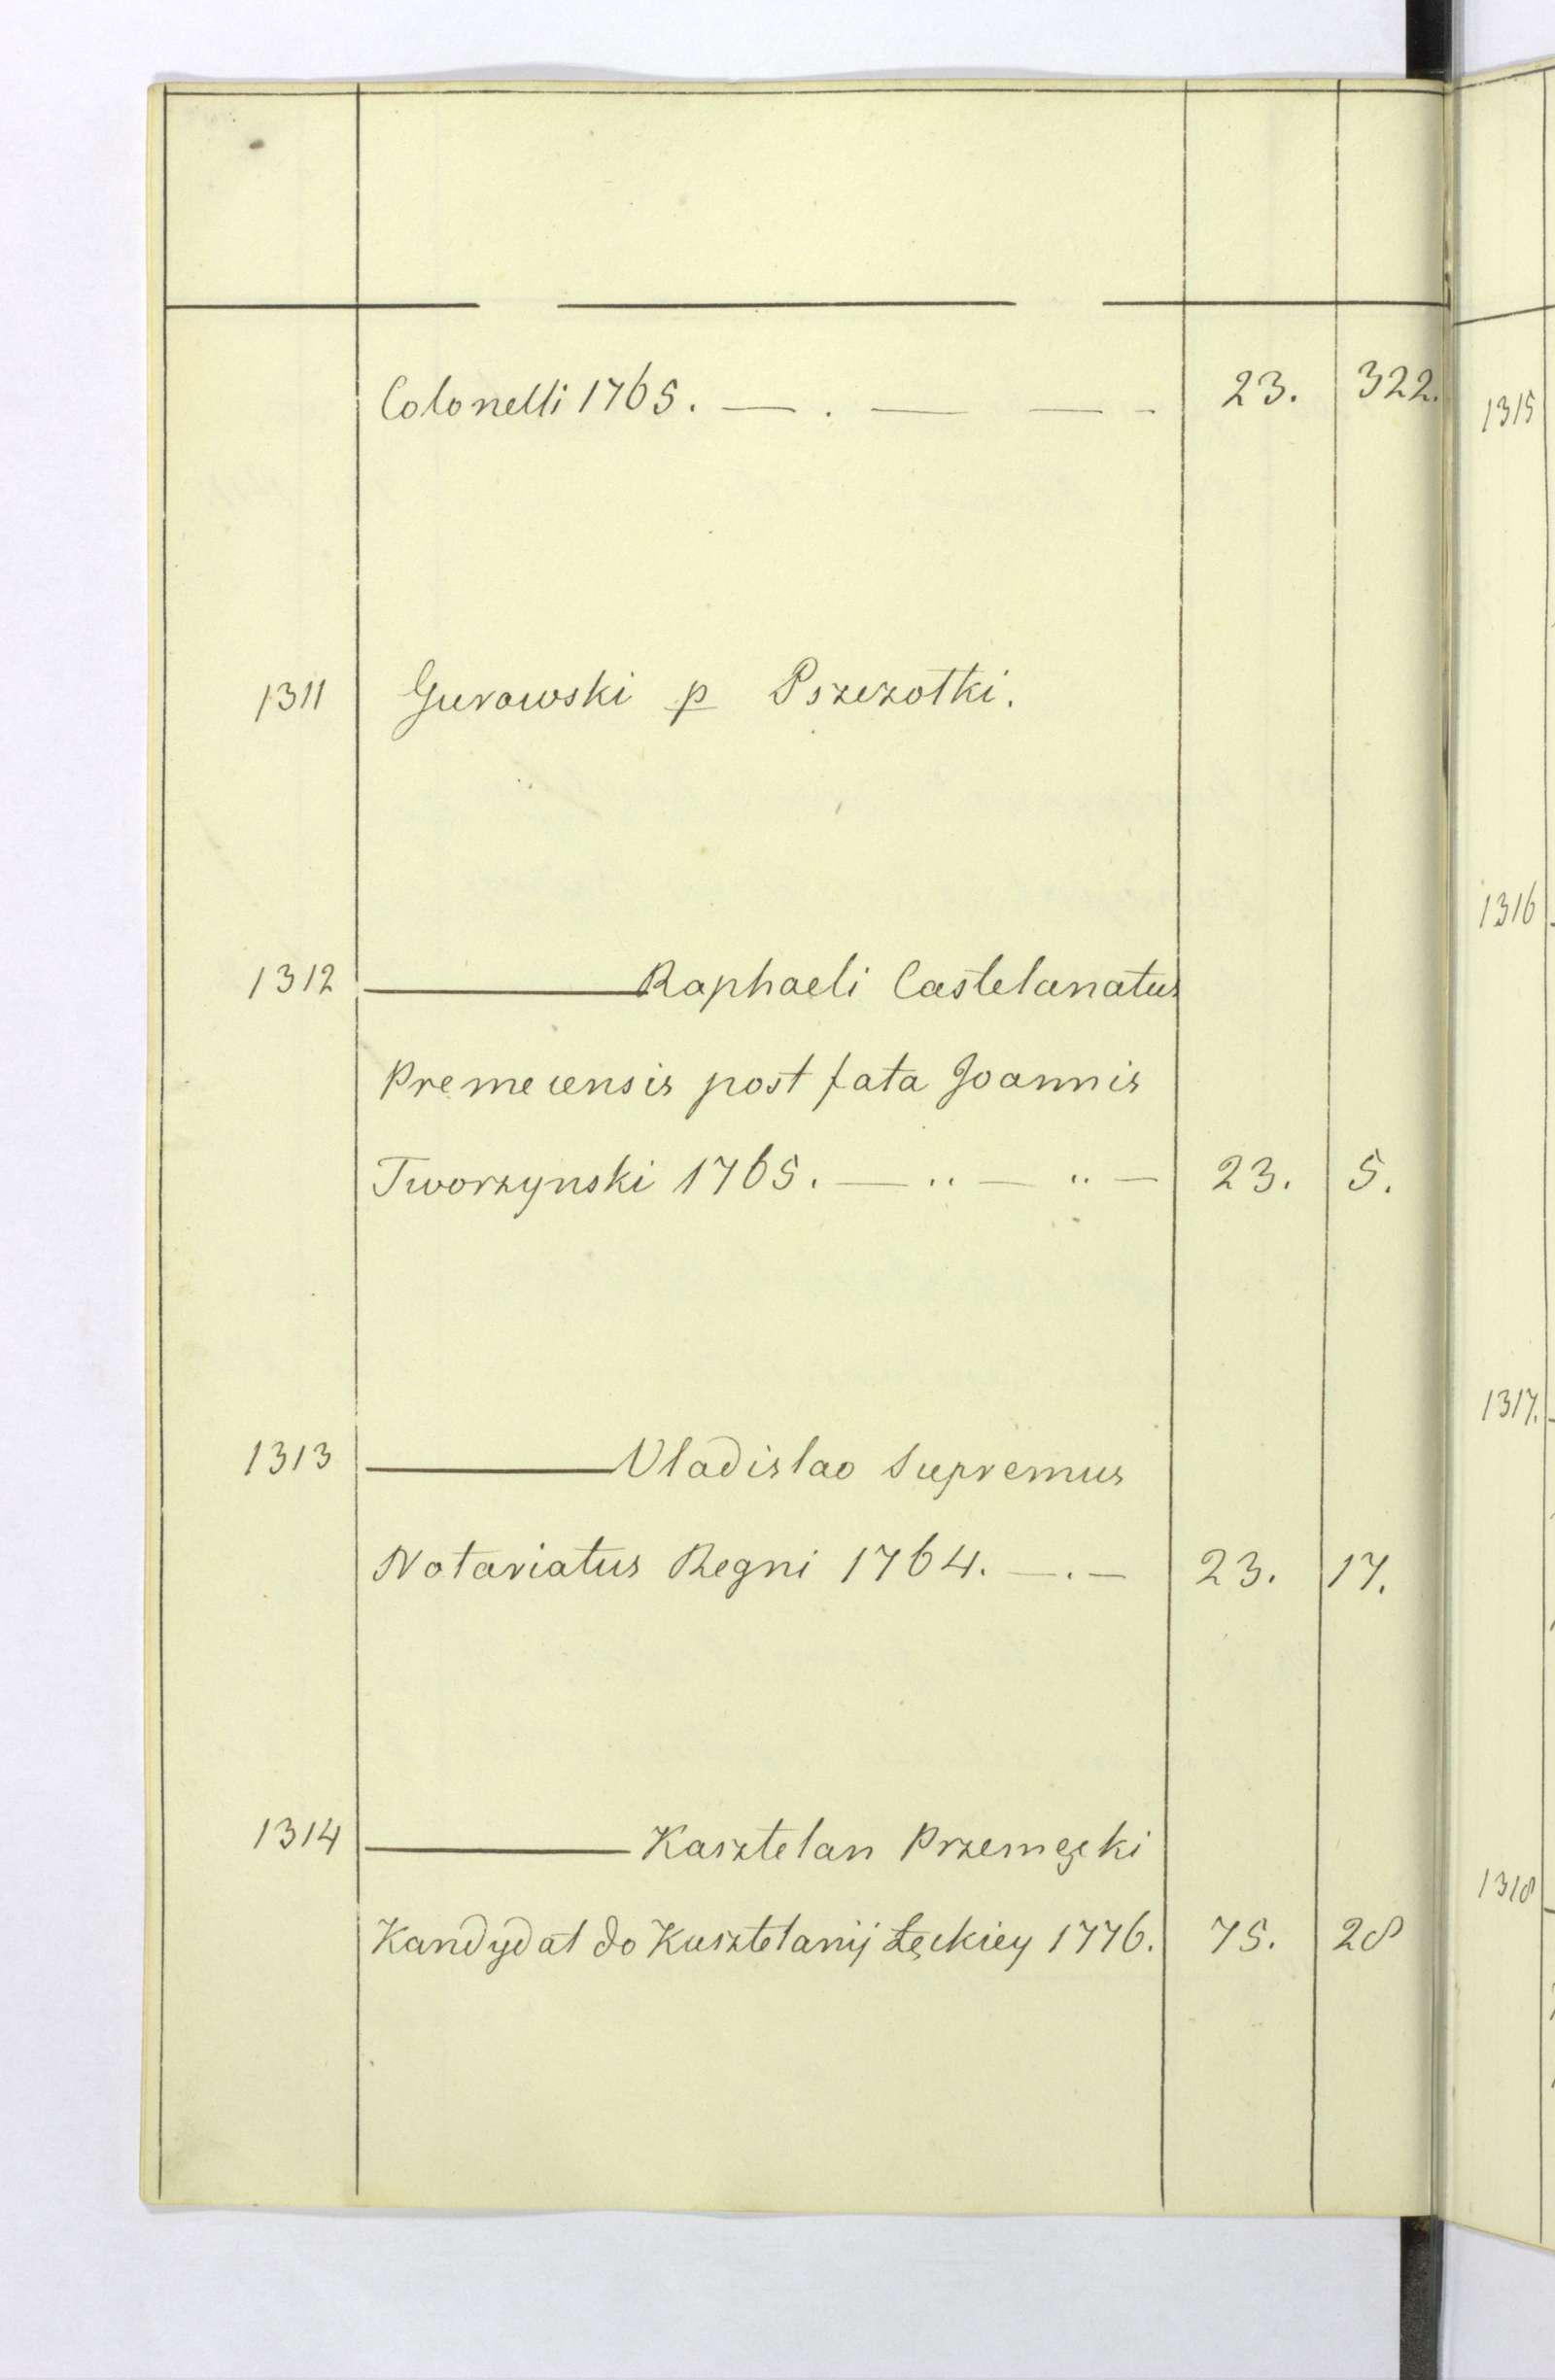 Colonelli 1765. — . — — - 23. 322.
1311 Gurowski p Pszczotki.
1312 ——— Raphaeli Castelanatus
Premecensis post fata Joannis
Tworzynski 1765. — .. — .. — 23. 5.
1313 ——— Vladislao Supremus
Notariatus Regni 1764. — . — 23. 17.
1314 ——— Kasztelan Przemęcki
Kandydat do Kasztelanij Łęckiey 1776. 75. 28
1315
1316
1317.
1318